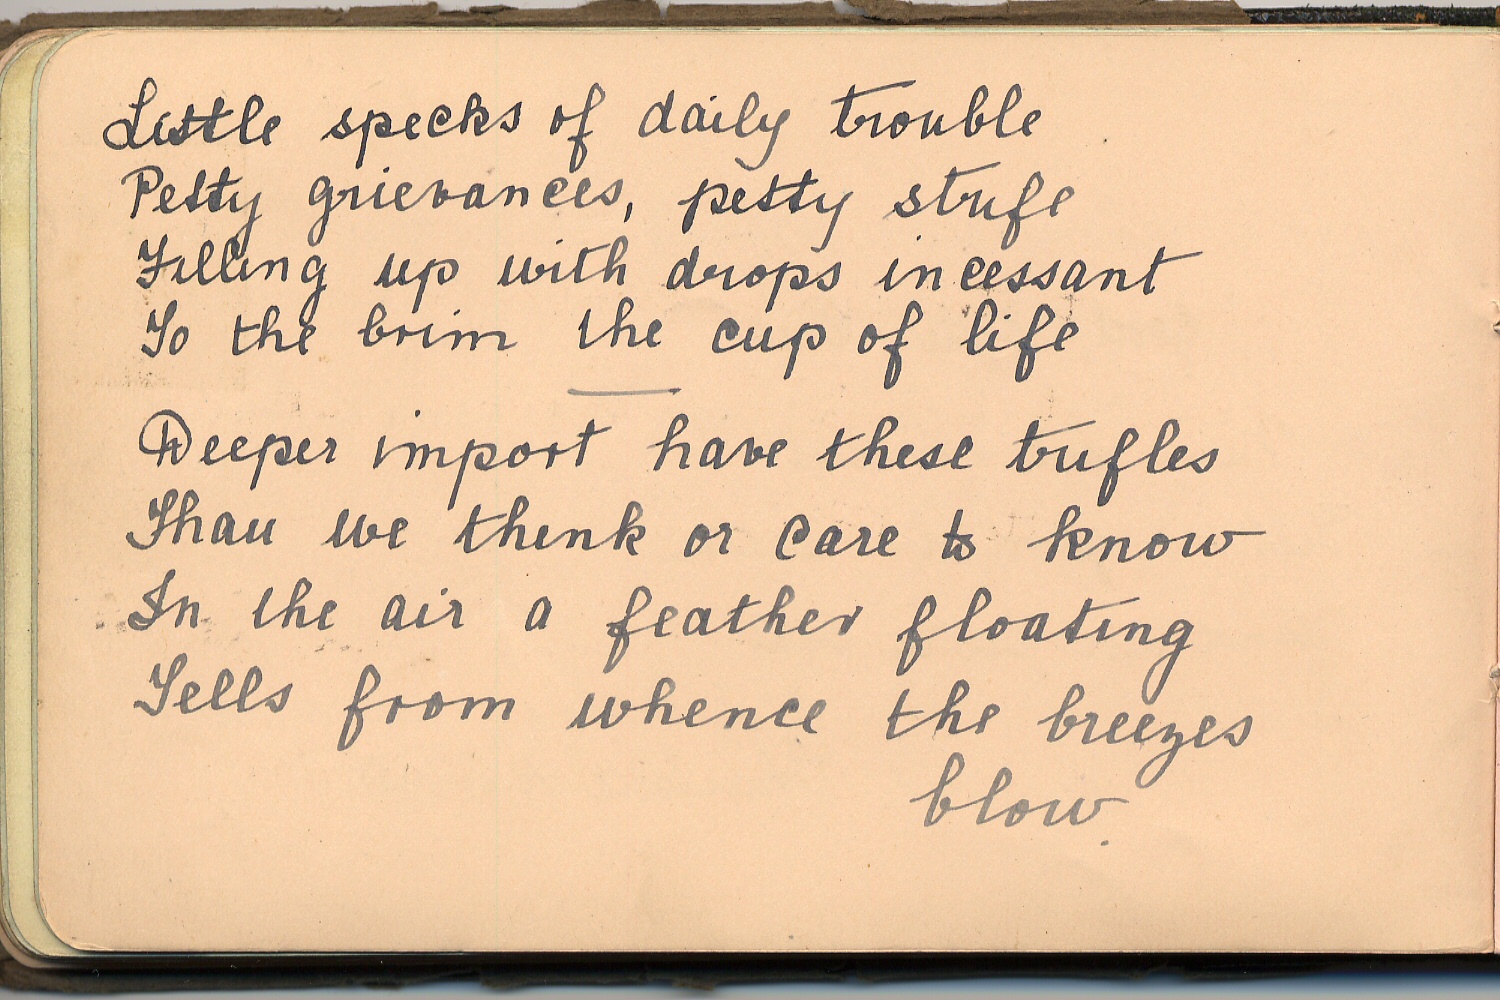 Little specks of daily trouble
Petty grievances, petty strife
Filling up with drops incessant
To the brim the cup of life
Deeper import have these trifles
Than we think or care to know
In the air a feather floating
Tells from whence the breezes
blow.